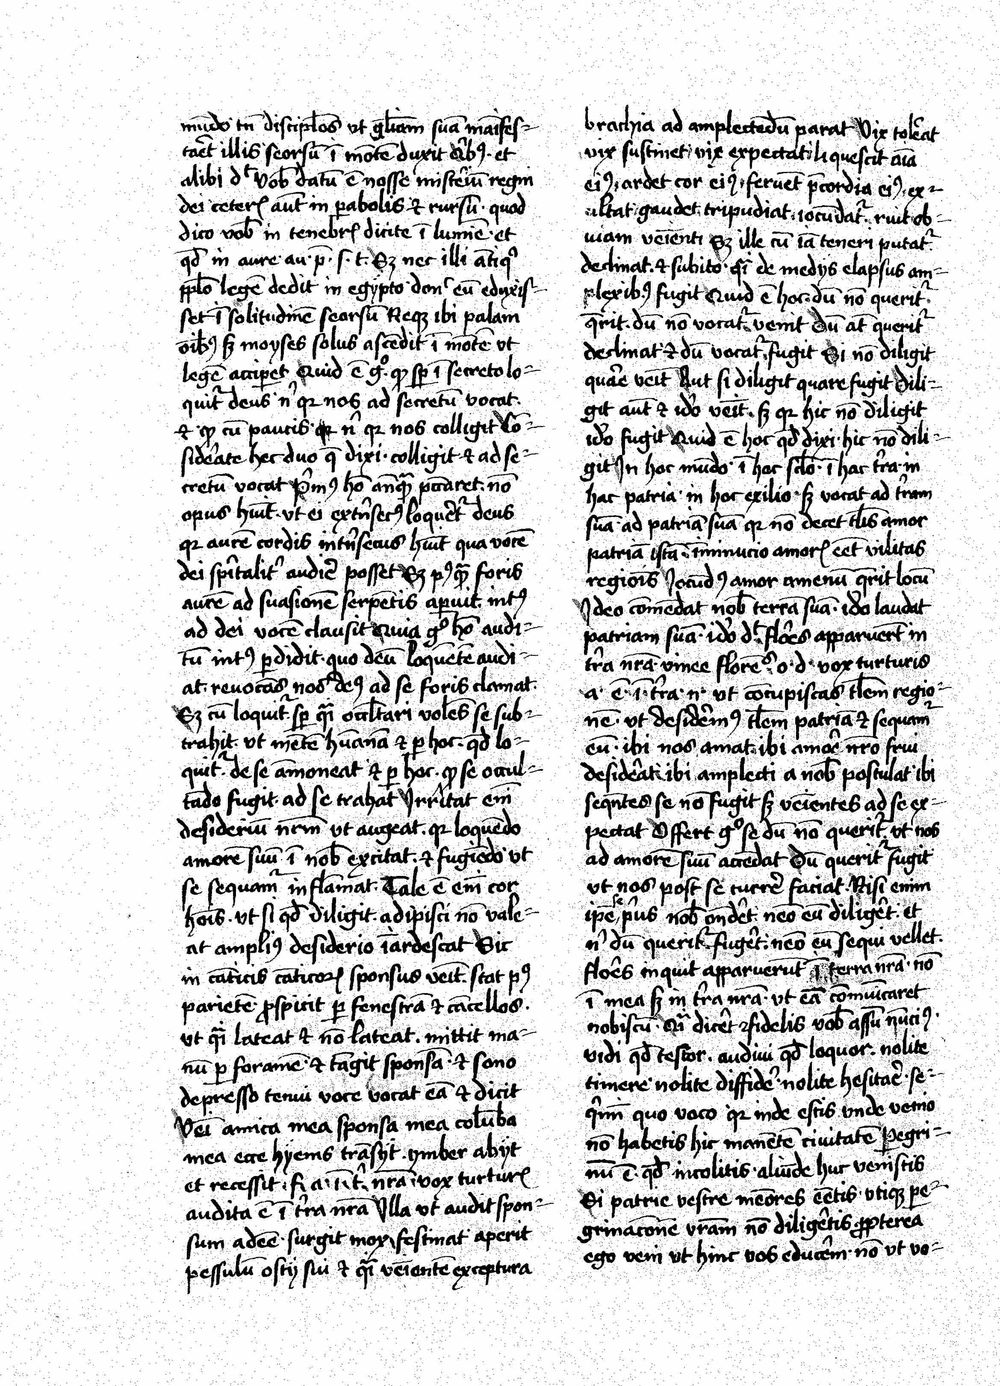 mūdo tn̄ discipl̄os vt gl̄iam suā māifes-
taēt illis seorsū ī mōte duxit q̄ib9 · et
alibi dt vob̄ datū ē nosse misteriū regni
dei ceter̄ aūt in pabolis & rursū · quod
dico vob̄ in tenebr̄ dicite ī lumīe · et
qd̄ in aure au · p̄ · s · t · Sz nec illi ātiq9
pplo legē dedit in egipto donc eū eduxis-
set ī solitudīnē seorsū Neqz ibi palam
oīb9 sz moyses solus ascēdit ī mōte vt
legē accip̄et Quid ē go ꝙ sp̄ ī secreto lo-
quitr deus n̄ qr nos ad secretū vocat ·
& ꝙ cū paucis n̄ qr nos colligit Cō-
sid̄ate hec duo q̄ dixi · colligit · & ad se-
cretū vocat P̄m9 hō anq̄ pccaret · nō
opus hūit · vt ei ext̄nsec9 loquēt deus
qr aurē cordis int̄nsecus hūit qua vocē
dei sp̄italit̄ audiē posset Sz p9q̄ foris
aurē ad suasionē serpētis aperuit · int9
ad dei vocē clausit Quia go hō audi-
tū int9 pdidit · quo deū loquētē audi-
at · reuocās nos de9 ad se foris clamat ·
Sz cū loquitr sp̄ q̄i occl̄tari volēs se sub-
trahit · vt mētē hūanā & p hoc · qd̄ lo-
quitr · de se am̄oneat & p hoc · ꝙ se occul-
tādo fugit · ad se trahat Irritat em̄
desideriū nr̄m vt augeat · qr loquēdo
amorē suū ī nob̄ excitat · & fugiēdo vt
se sequamr inflamat · Tale ē em̄ cor
hoīs · vt si qd̄ diligit · adipisci nō vale-
at ampli9 desiderio iārdescat Sic
in cāticis cāticor̄ sponsus veīt · stat p9
parietē · prospicit p fenestrā & cācellos ·
vt q̄i lateat & nō lateat · mittit ma-
nū p foramē · & tāgit sponsā · & sono
depresso tenui voce vocat eā & dicit
Veī amica mea sponsa mea colūba
mea ecce hyems trāsyt · ymber abyt
et recessit · f · a · i · t̄ · nr̄a · vox turtur̄
audita ē ī t̄ra nr̄a Illa vt audit spon-
sum adeē · surgit mox · festinat aperit
pessulū ostij sui & q̄i veīentē exceptura
brachia ad amplectēdū parat Vix tol̄eat
vix sustinet · vix expectat · liquescit aīa
ei9 · ardet cor ei9 · feruēt p̄cordia ei9 · ex-
ultat · gaudet · tripudiat · iocūdatr · ruit ob-
uiam veīenti Sz ille cū iā teneri putatr ·
declinat · & subito · q̄i de medys elapsus am-
plexib9 fugit Quid ē hoc · dū nō queritr ·
q̄rit · dū nō vocatr · venit Dū āt queritr
declinat · & dū vocatr · fugit Si nō diligit
quāe veīt Aut si diligit quare fugit Dili-
git aūt & ido veīt · sz qr hic nō diligit
ido fugit Quid ē hoc qd̄ dixi · hic nō dili-
git In hoc mūdo · ī hoc scl̄o · ī hac t̄ra · in
hac patria · in hoc exilio · sz vocat ad t̄ram
suā · ad patriā suā qr nō decet tl̄is amor
patriā istā · iminucio amor̄ eēt vilitas
regiois Iocūd9 amor amenū q̄rit locū
Ideo cōmēdat nob̄ terrā suā · ido laudat
patriam suā · ido dt · flōes apparuert in
t̄ra nr̄a · vinee florē · o · d · vox turturis
a · ē · i · t̄ra · n · vt cōcupiscas tl̄em regio-
nē · vt desid̄em9 tl̄em patriā & sequamr
eū · ibi nos amat · ibi amoē nr̄o frui
desid̄at · ibi amplecti a nob̄ postulat · ibi
seqn̄tes se nō fugit sz veīentes ad se ex-
pectat Offert go se dū nō queritr · vt nos
ad amorē suū accēdat Dū queritr fugit
vt nos post se currē faciat · Nisi enim
ipē p̄us nob̄ on̄det · nēo eū diligēt · et
n̄ dū queritr fugēt · nēo eū sequi vellet ·
flōes inquit apparuerūt ī terra nr̄a · nō
ī mea sz in t̄ra nr̄a · vt eā cōmūicaret
nobiscū · Q̄i dicēt · fidelis vob̄ assū nūci9 ·
vidi qd̄ testor · audiui qd̄ loquor · nolite
timere · nolite diffidē · nolite hesitaē · se-
q̄mī quo voco qr inde estis vnde venio
nō habetis hic manētē ciuitatē Pegri-
nū ē · qd̄ incolitis · aliūde huc venistis
Si patrie vestre mēōres eētis · vtiqz pe-
grinacōnē vr̄am nō diligētis propterea
ego veni vt hinc vos educēm · nō vt vo-